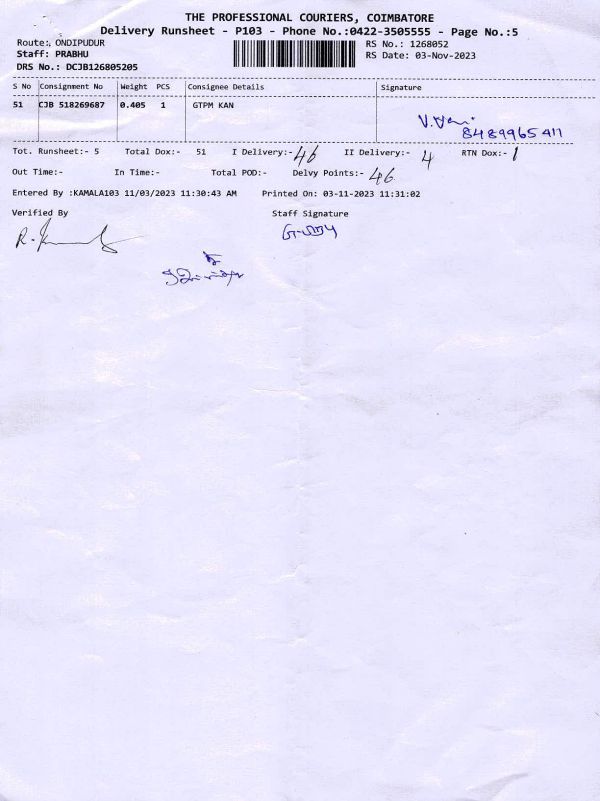 THE PROFESSIONAL COURIERS, COIMBATORE
Delivery Runsheet - P103 - Phone No.:0422-3505555 - Page No.:5
Route: ONDIPUDUR
RS No.: 1268052
Staff: PRABHU
RS Date: 03-Nov-2023
DRS No.: DCJB126805205
S No Consignment No Weight PCS Consignee Details Signature
51 CJB 518269687 0.405 1 GTPM KAN
8489965411
Tot. Runsheet:- 5 Total Dox:- 51 I Delivery:- 46 II Delivery:- 4 RTN Dox:- 1
Out Time:- In Time:- Total POD:- Delvy Points:- 46
Entered By :KAMALA103 11/03/2023 11:30:43 AM Printed On: 03-11-2023 11:31:02
Verified By Staff Signature